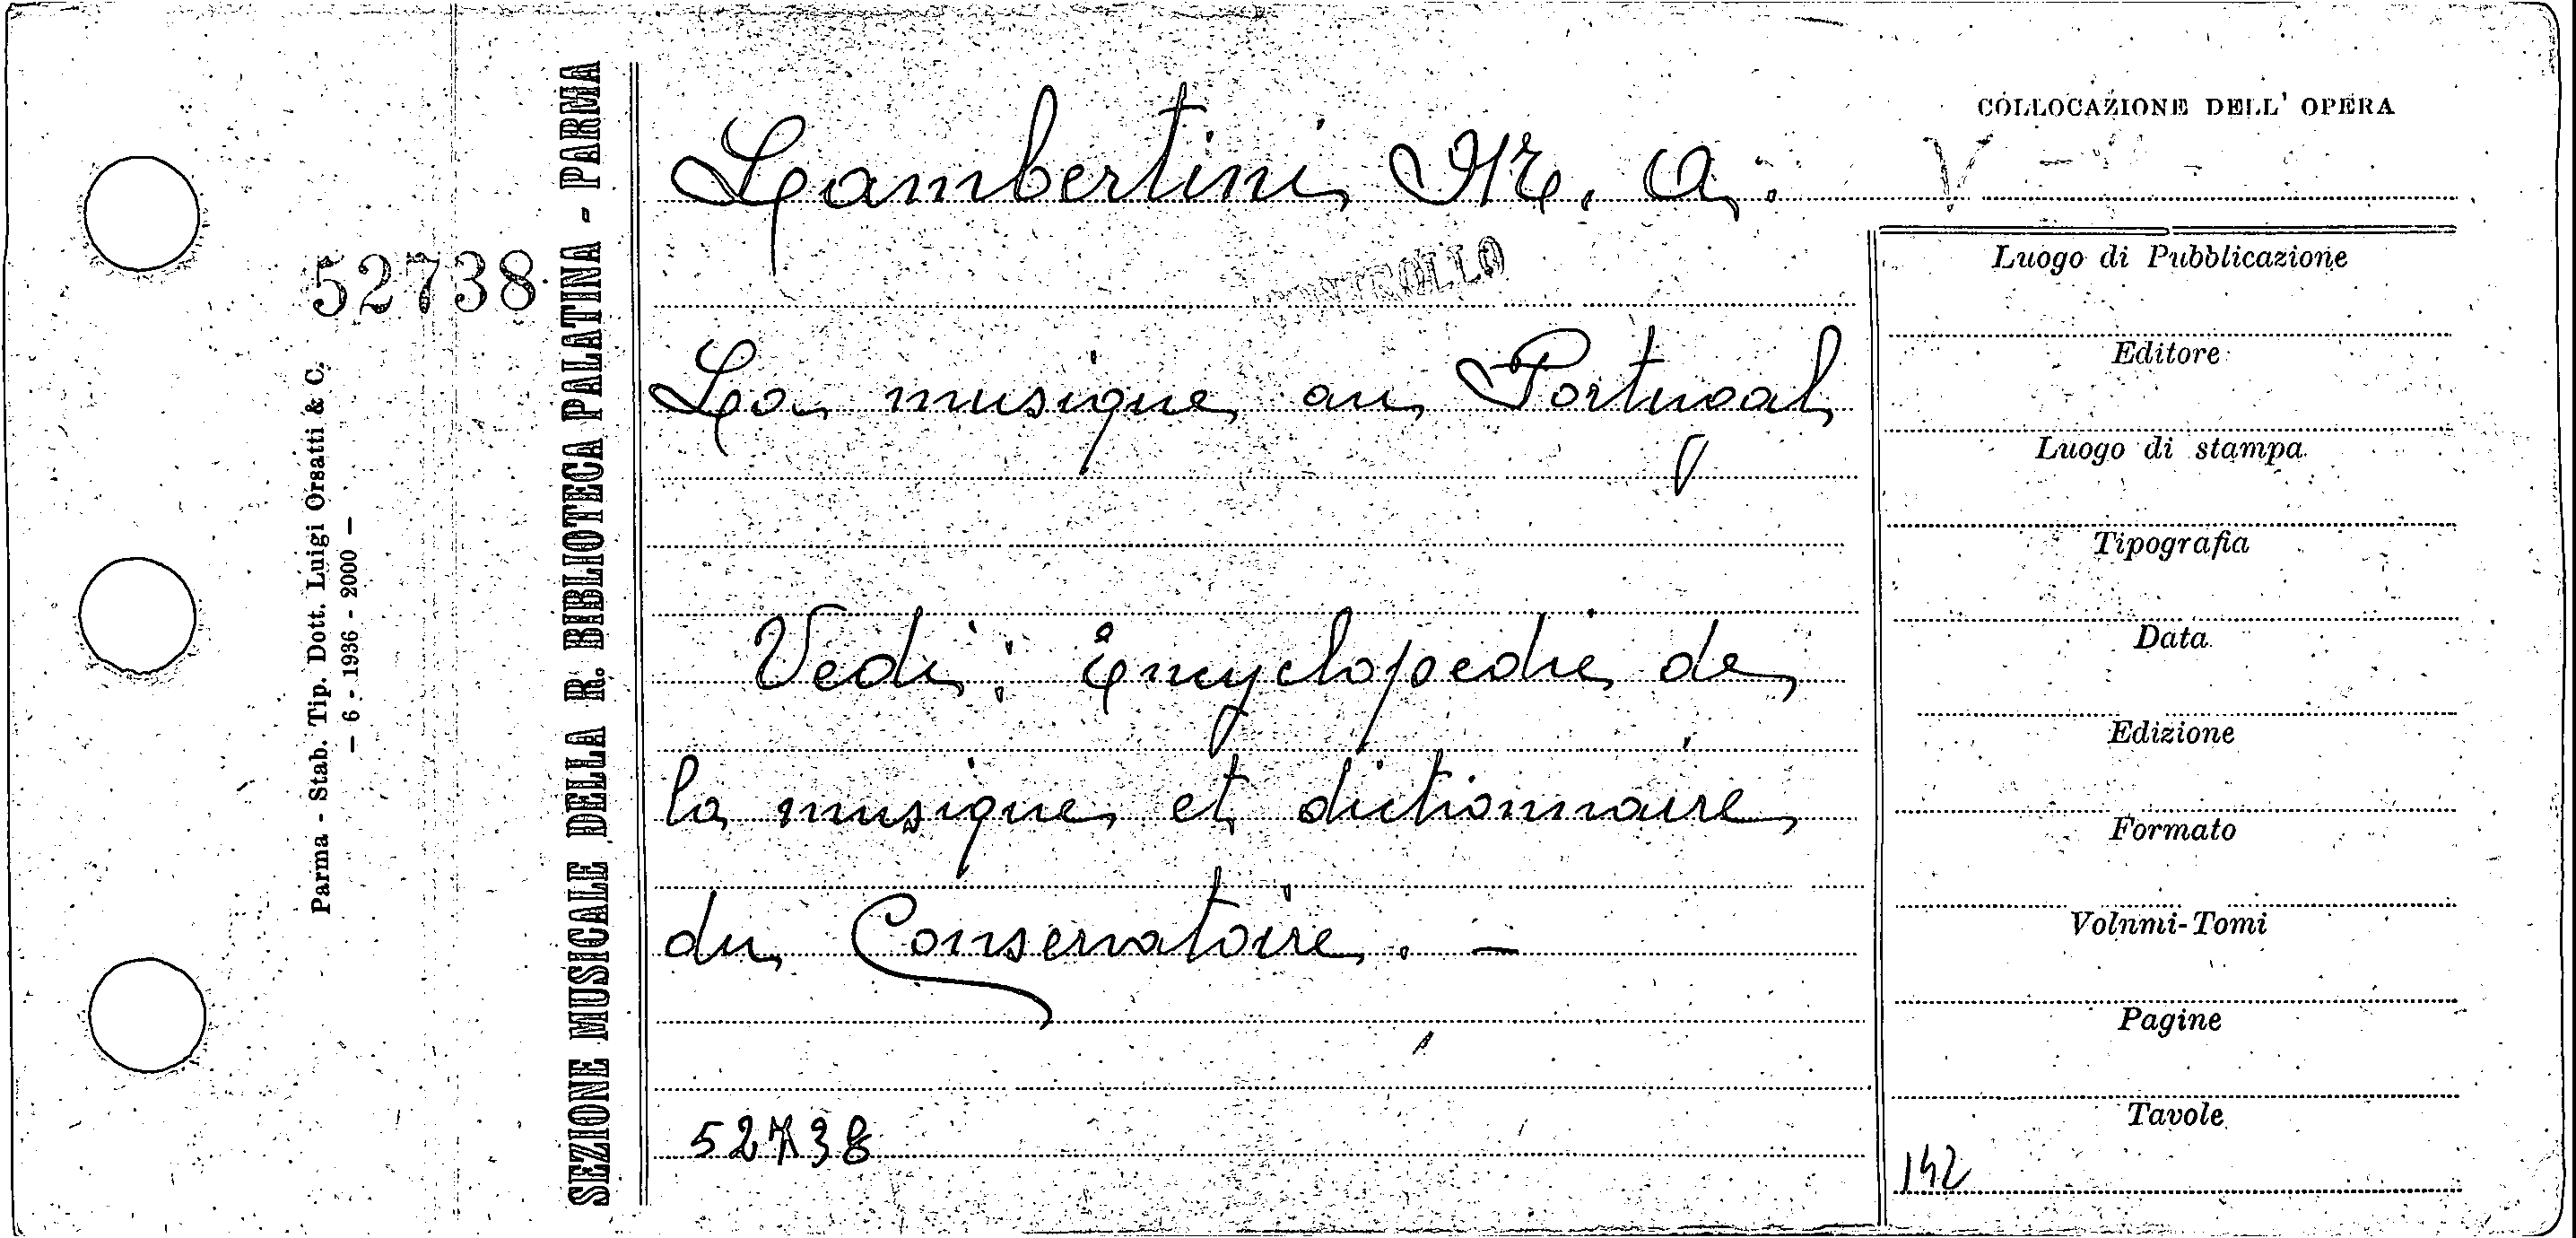 COLLOCAZIONE DELL' OPERA
Lambertini M. A.
V
CONTROLLO
52738
La musique au Portugal
Vedi: Encyclopedie de
la musique et dictionnaire
du Conservatoire. -
52738
Luogo di Pubblicazione
Editore
Luogo di stampa
Tipografia
Data
Edizione
Formato
Volumi-Tomi
Pagine
Tavole
142
SEZIONE MUSICALE DELLA R. BIBLIOTECA PALATINA - PARMA
Parma - Stab. Tip. Dott. Luigi Orsatti & C.
- 6 - 1936 - 2000 -